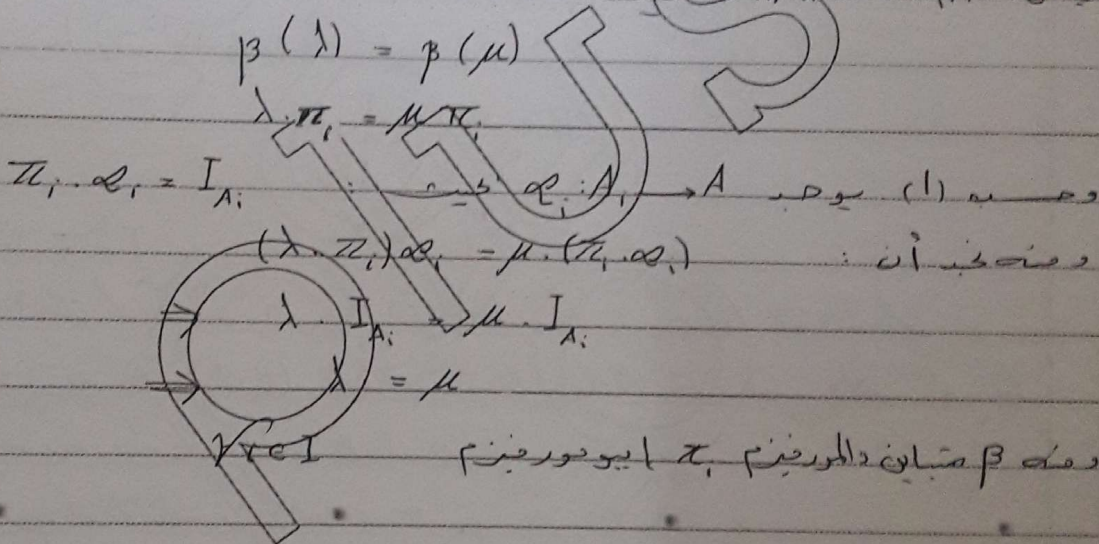 β(λ) = β(μ)
λ·π_i = μ·π_i
وحسب (1) يوجد α_i : A_i → A حيث π_i·α_i = I_{A_i}
ومنه نجد أن : (λ·π_i)α_i = μ·(π_i·α_i)
⇒ λ·I_{A_i} = μ·I_{A_i}
⇒ λ = μ
ومنه β متباين والمورفيزم π_i ايبومورفيزم ∀i∈I